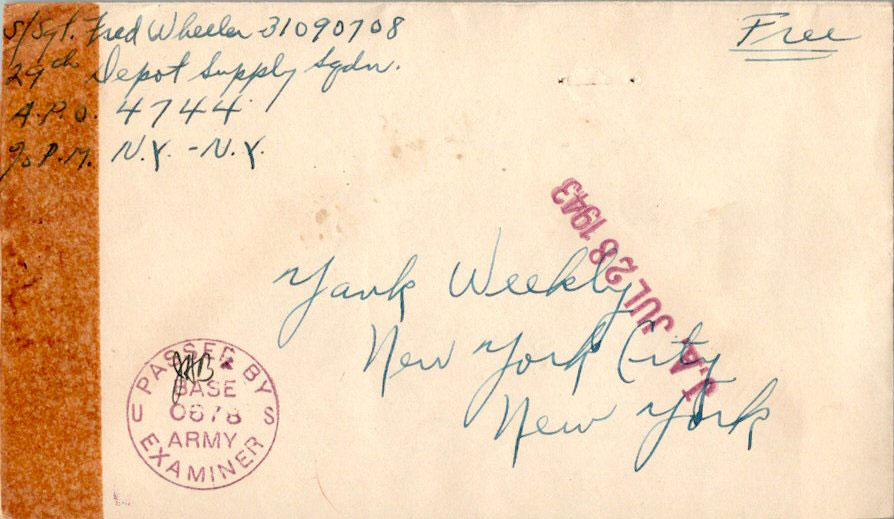 S/Sgt. Fred Wheeler 31090708
29th Depot Supply Sqdn.
A.P.O. 4744
c/o P.M. N.Y. - N.Y.
Free
J.A. JUL 28 1943
Yank Weekly
New York City
New York
PASSED BY
JAB
BASE
U 0678 S
ARMY
EXAMINER